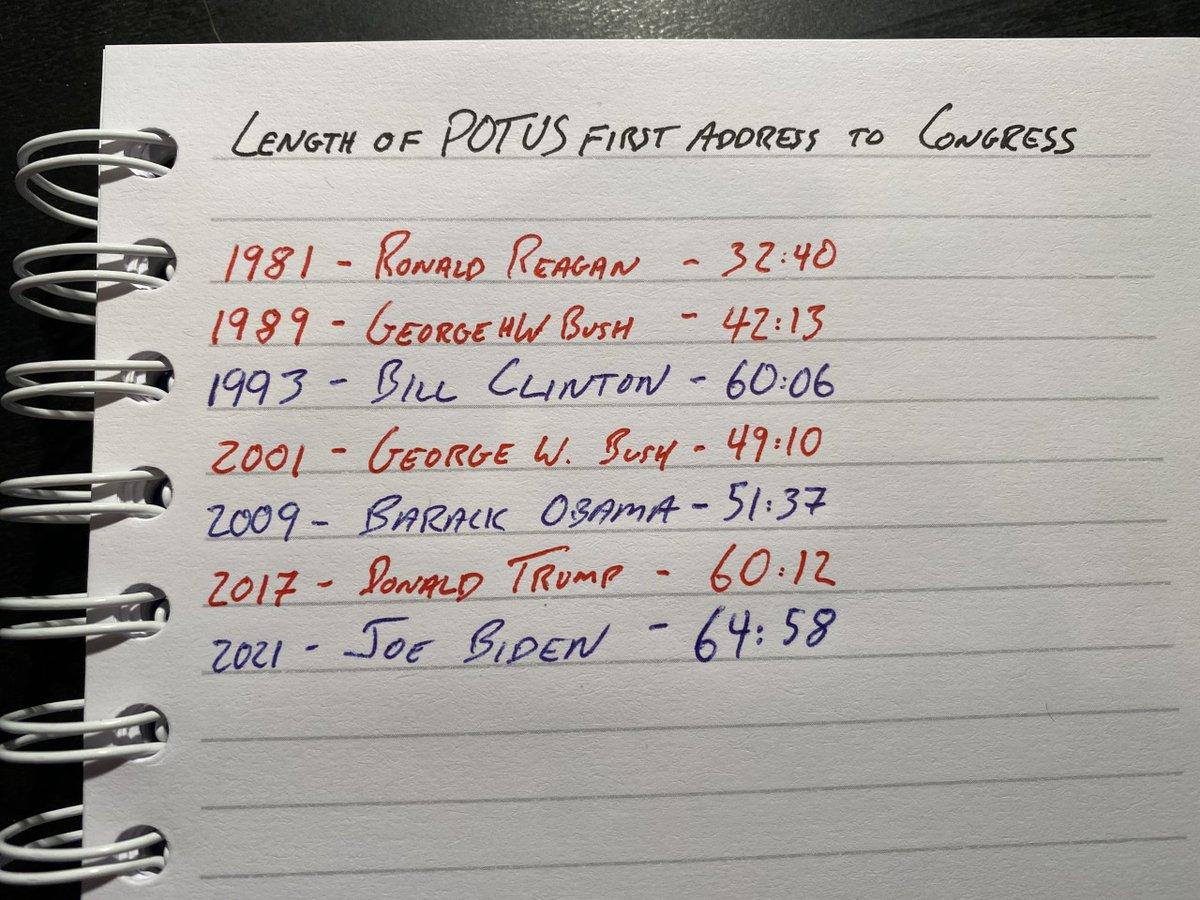 LENGTH OF POTUS FIRST ADDRESS TO CONGRESS
1981 - RONALD REAGAN - 32:40
1989 - GEORGE HW BUSH - 42:13
1993 - BILL CLINTON - 60:06
2001 - GEORGE W. BUSH - 49:10
2009 - BARACK OBAMA - 51:37
2017 - DONALD TRUMP - 60:12
2021 - JOE BIDEN - 64:58